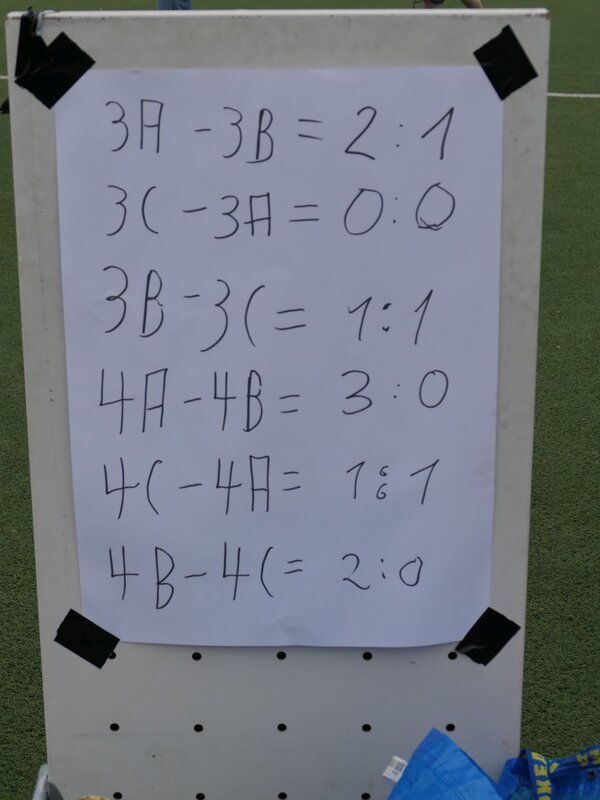 3A - 3B = 2:1
3C - 3A = 0:0
3B - 3C = 1:1
4A - 4B = 3:0
4C - 4A = 1:1
4B - 4C = 2:0
IKEA